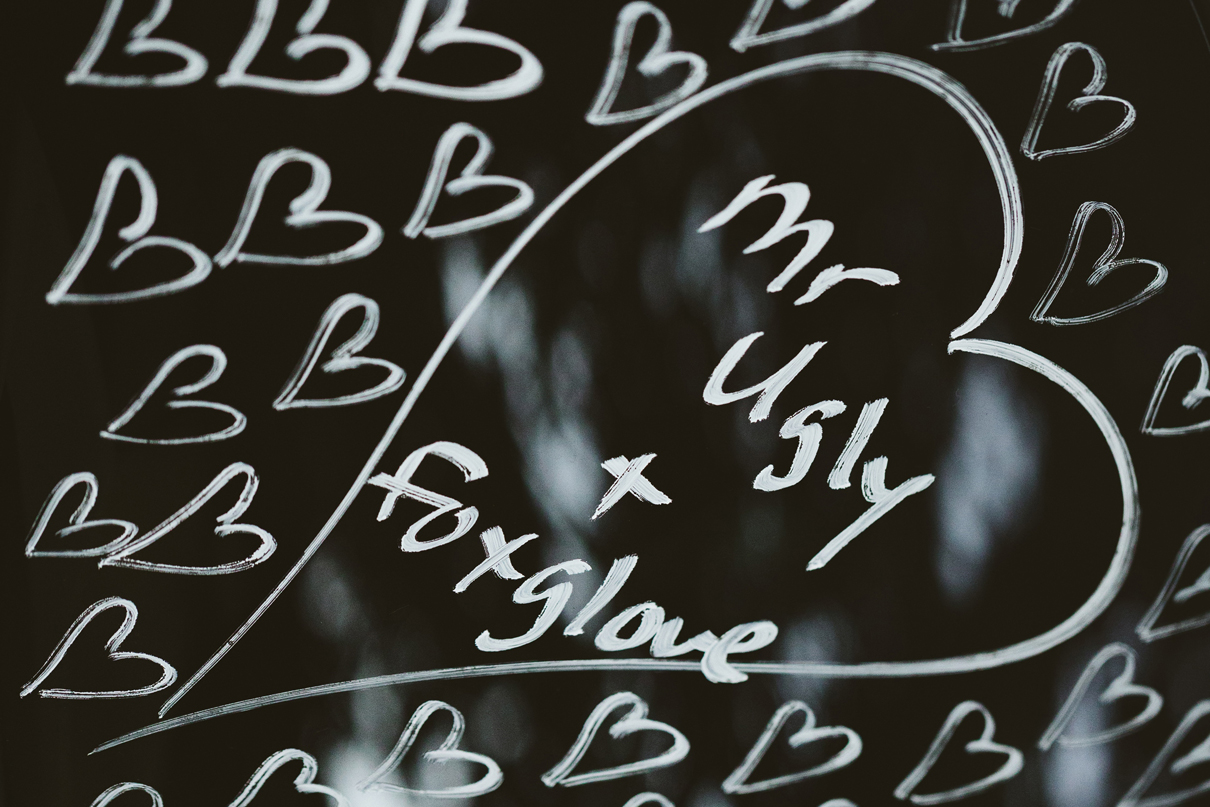 Mr
Ugly
x
foxglove